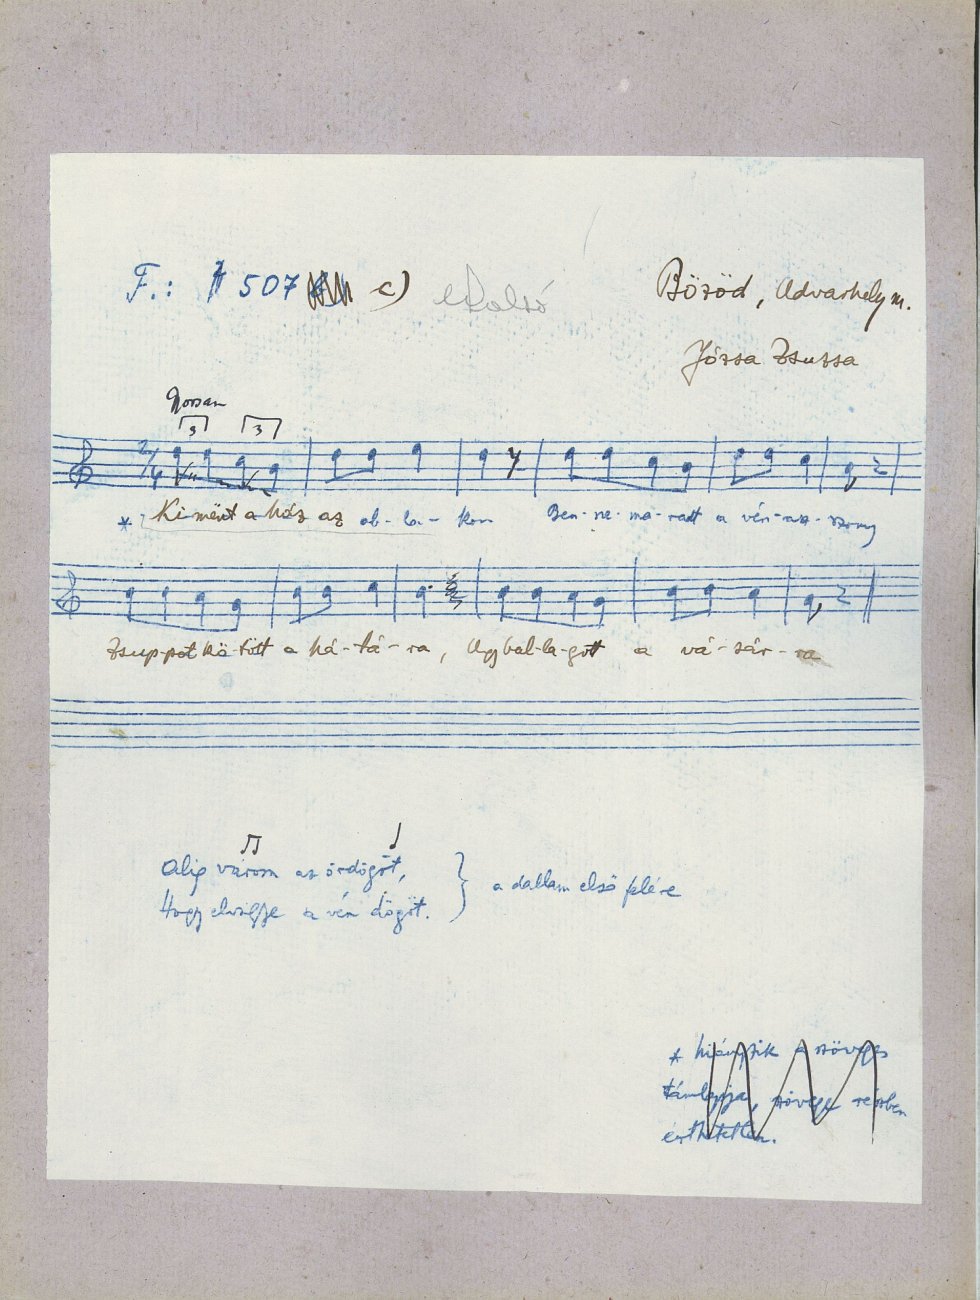 F.: 507 c) utolsó
Bözöd, Udvarhely m.
Józsa Zsuzsa
Gyorsan
3 3
2/4
* Ki-mënt a ház az ab-la-kon Ben-ne-ma-radt a vén-asz-szony
Zsup-pot kö-tött a há-tá-ra, Ugy bal-la-gott a vá-sár-ra
Alig várom az ördögöt,
Hogy elvigye a vén dögöt.
} a dallam első felére
* hiányzik a szöveges
támlapja, szövege részben
érthetetlen.